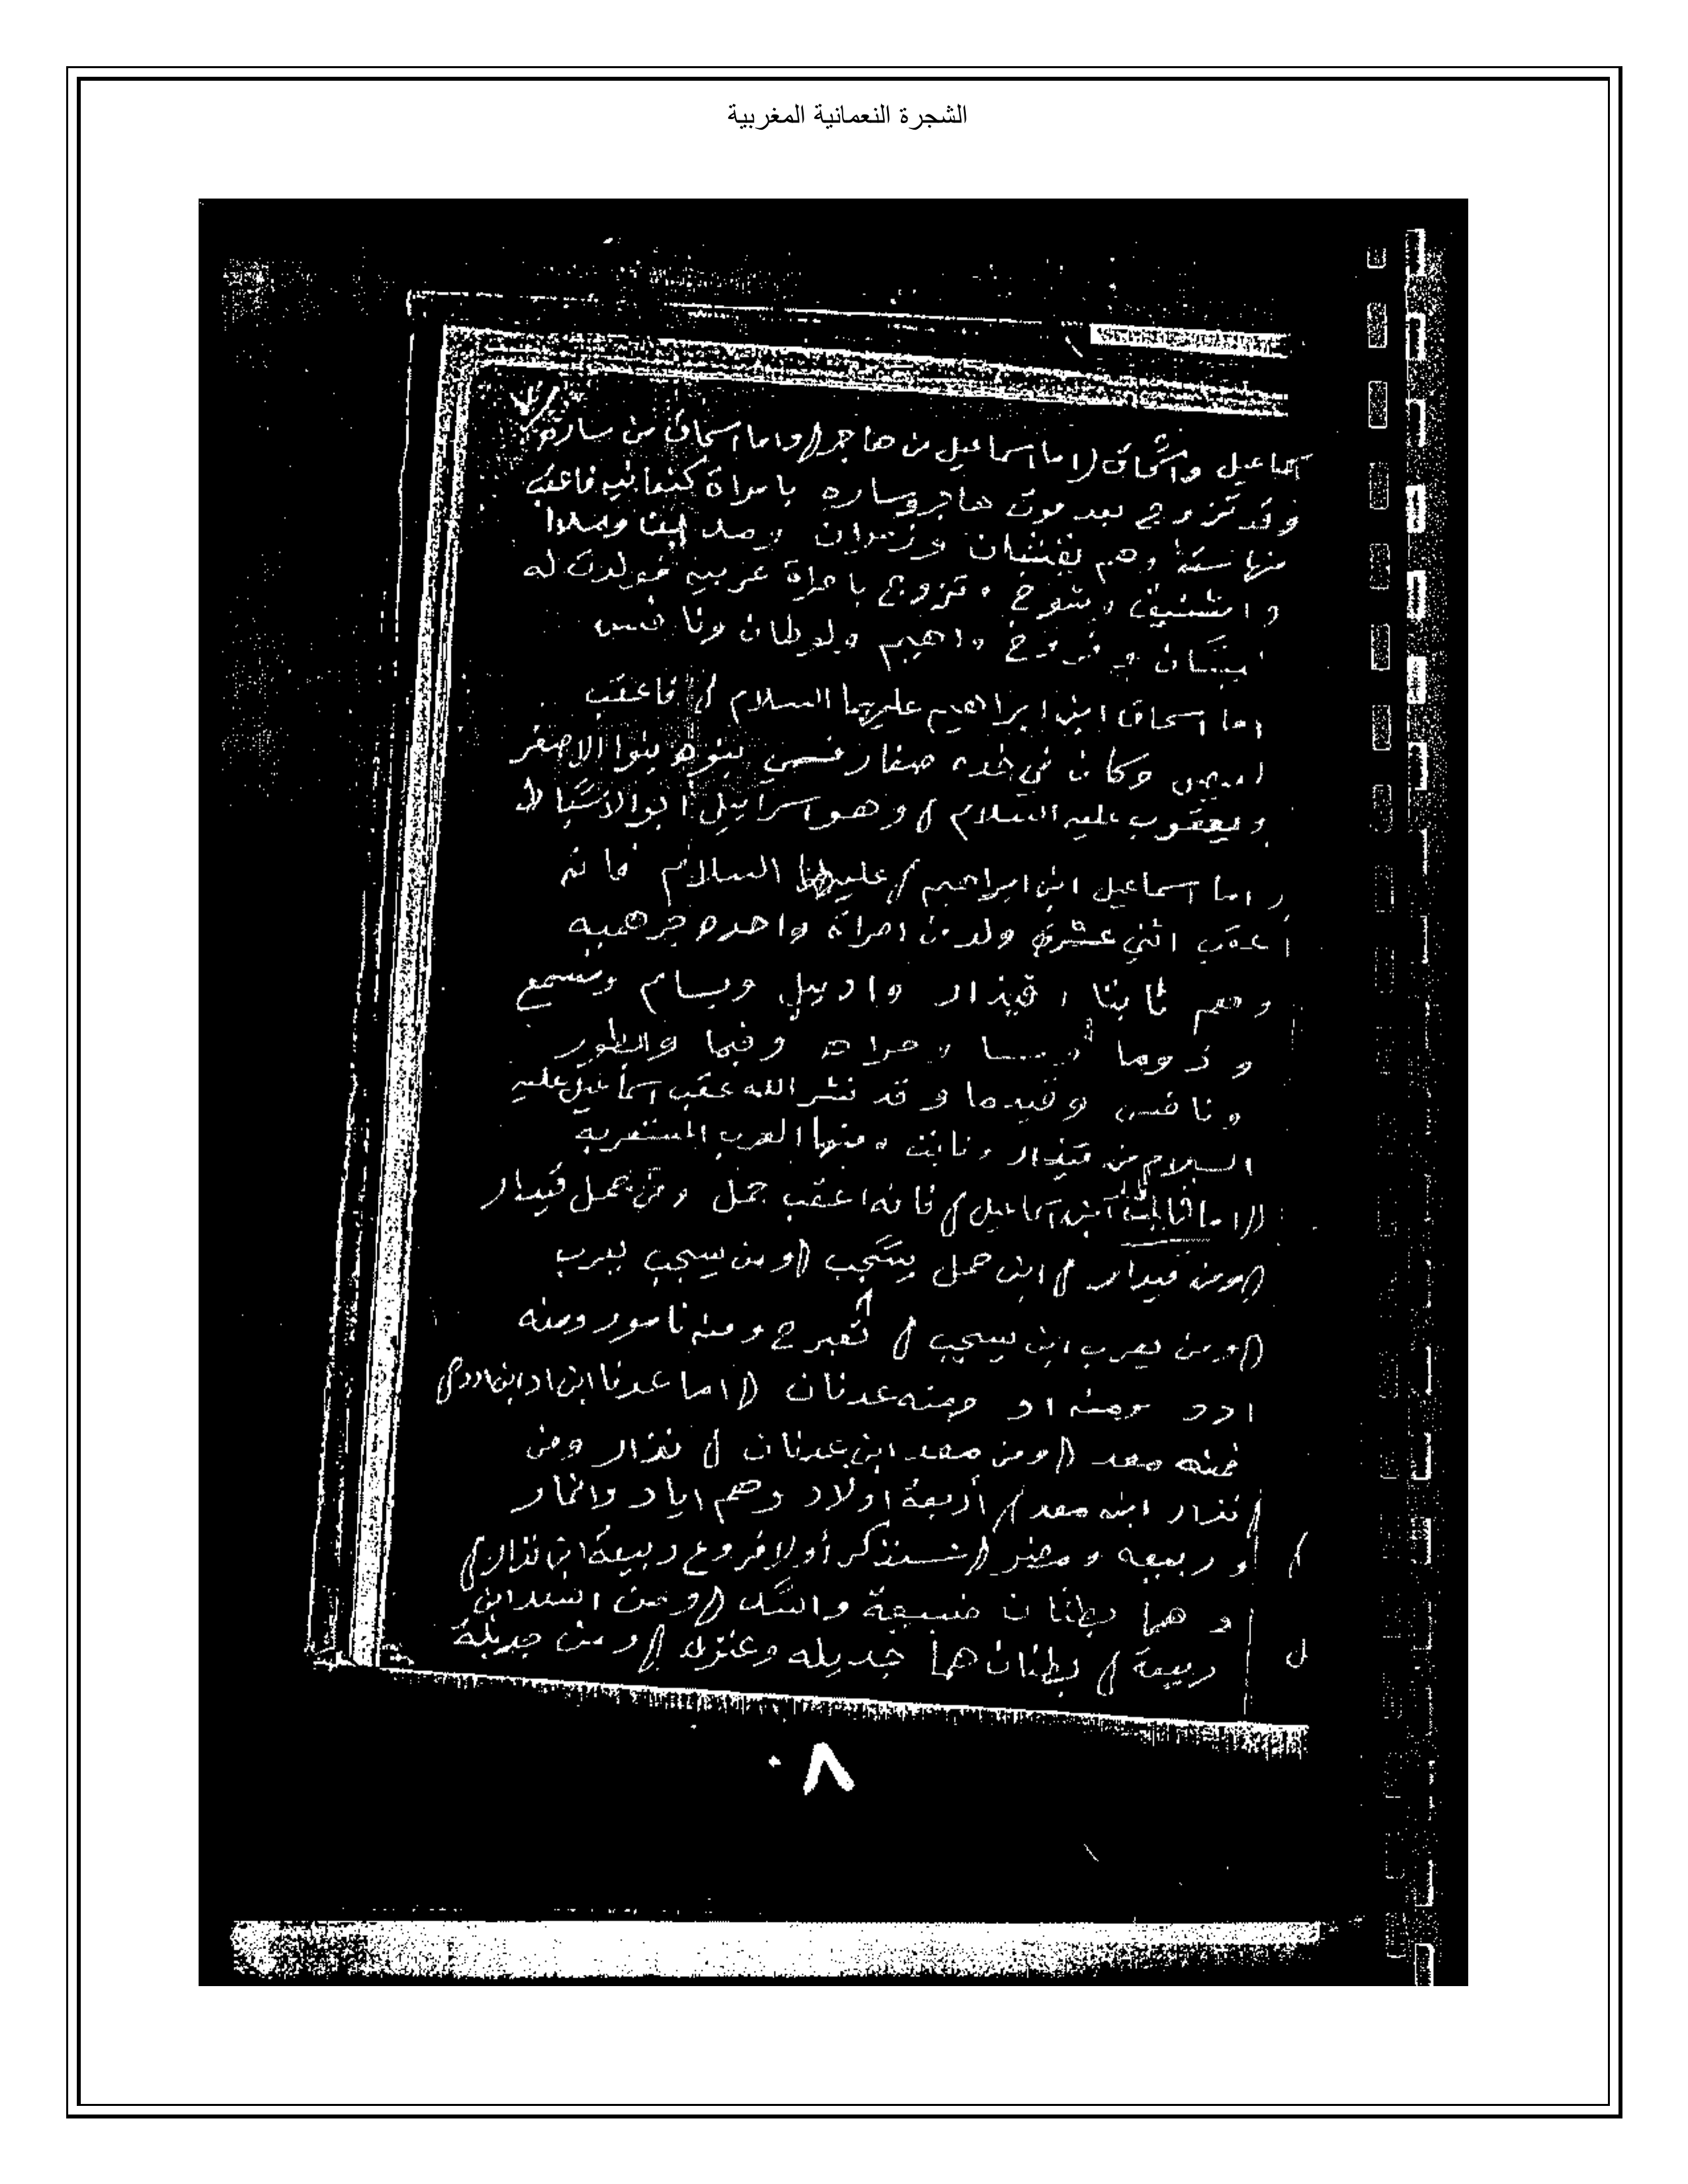 الشجرة النعمانية المغربية
اسماعيل واسحاق (اما اسماعيل من هاجر) واما اسحاق من سارة
وقد تزوج بعد موت هاجر وساره بامراة كنعانيه فاعقب
منها ستة وهم يقشان وزمران
وتزوج بامراة عربيه فولدت له
وفروخ واهيم ولوطان ونافس
اما اسحاق ابن ابراهيم عليهما السلام) فاعقب
وكان في خده صفار فسمي بنوه بنوا الاصفر
ويعقوب عليه السلام) وهو اسرائيل ابوالاسباط
واما اسماعيل ابن ابراهيم) عليهما السلام فانه
أعقب اثني عشرة ولد من امراة واحده جرهميه
وهم ثابتا وقيذار واوبيل وبسام ومسمع
وذوما وفيما والطور
ونافس وقيدما وقد نشر الله عقب اسماعيل عليه
السلام من قيذار ونابت ومنها العرب المستعربه
(اما ابن اسماعيل) فانه اعقب حمل ومن حمل قيدار
(ومن قيدار) ابن حمل يشجب (ومن يسجب يعرب
(ومن يعرب ابن يسجب) ومنه ناحور ومنه
ادد ومنه اد ومنه عدنان (اما عدنا ابن اد ابن ادد)
فمنه معد (ومن معد ابن عدنان) نذار ومن
نذار ابن معد) أربعة اولاد وهم اياد وانمار
وربيعه ومضر (فسنذكر أولا فروع ربيعة ابن نذار)
وهما بطنان ضبيعة واسد (ومن اسد ابن
ربيعة) بطنان هما جديله وعنزه (ومن جديلة
٨